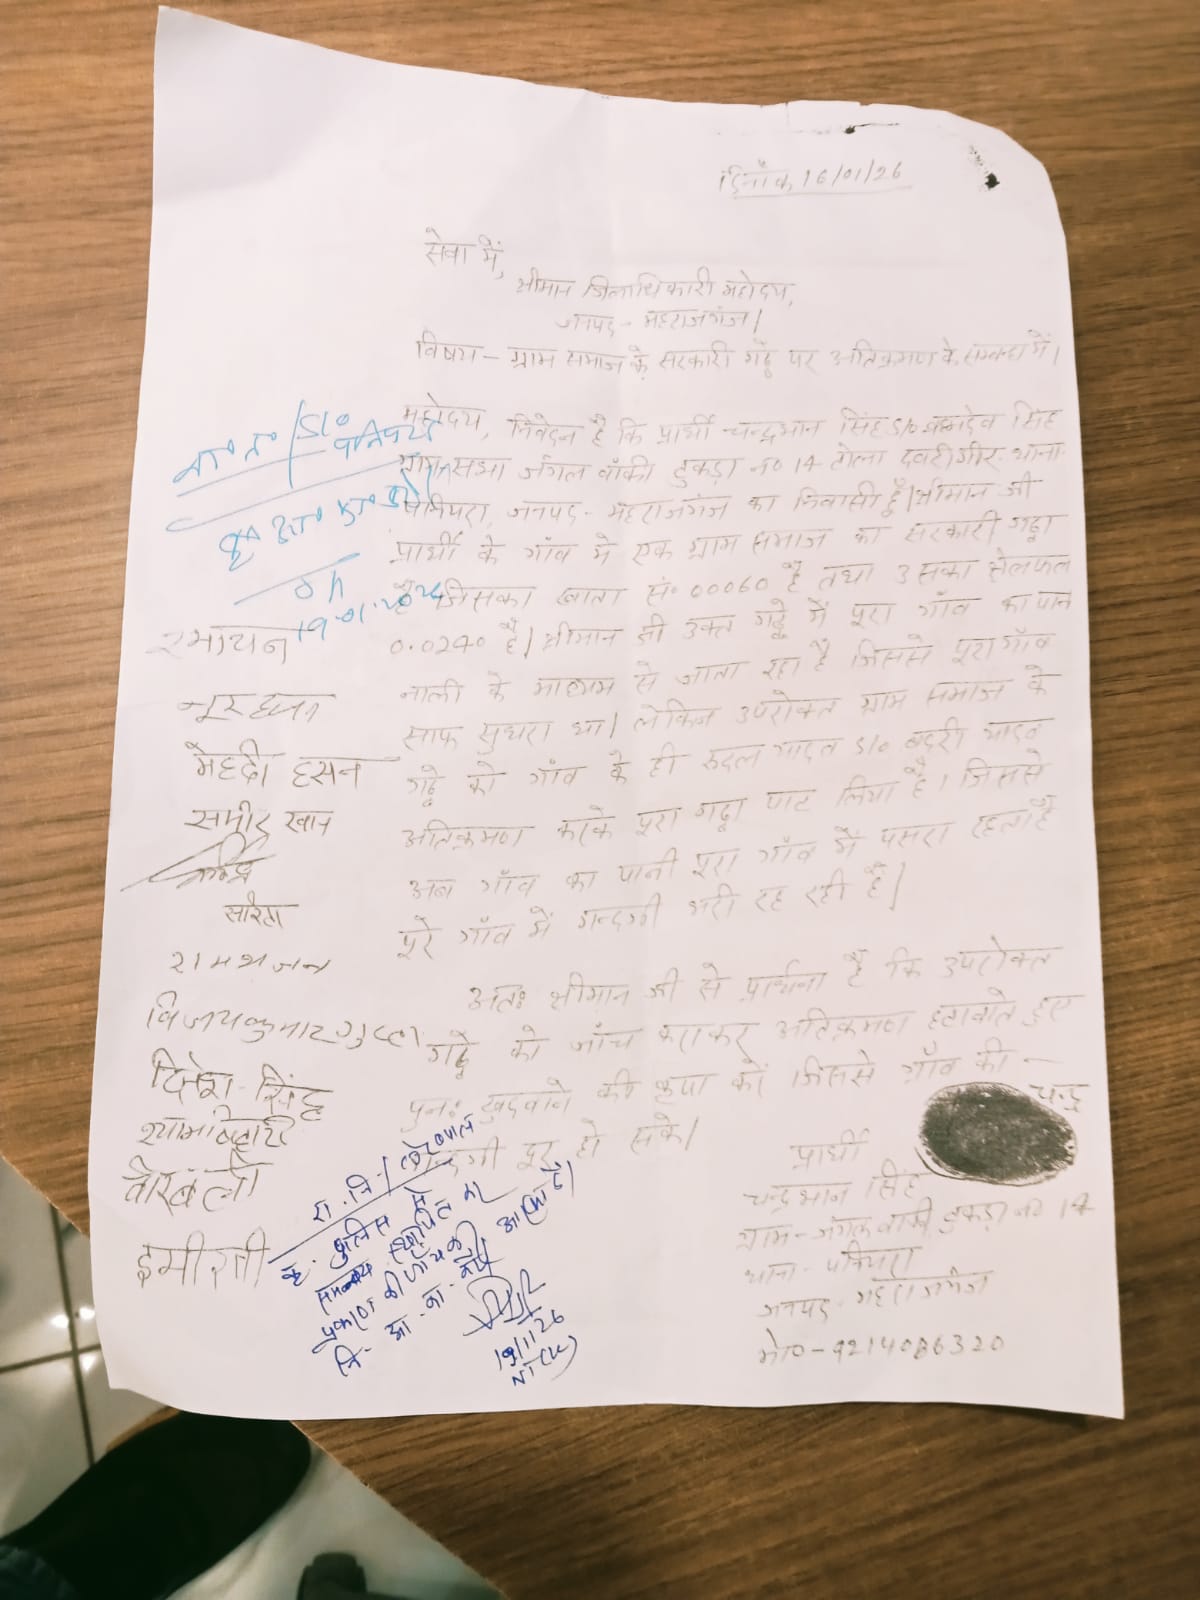 दिनाँक 16/01/26
सेवा में,
श्रीमान जिलाधिकारी महोदय,
जनपद - महराजगंज।
विषय - ग्राम समाज के सरकारी गढ्ढे पर अतिक्रमण के सम्बन्ध में।
महोदय, निवेदन है कि प्रार्थी चन्द्रभान सिंह S/o ब्रह्मदेव सिंह
ग्राम सभा जंगल बाँकी टुकड़ा नं० 14 टोला थाना
पनियरा, जनपद - महराजगंज का निवासी है। श्रीमान जी
प्रार्थी के गाँव में एक ग्राम समाज का सरकारी गढ्ढा
है जिसका खाता सं० 00060 है तथा उसका क्षेत्रफल
0.0240 है। श्रीमान जी उक्त गढ्ढे में पूरा गाँव का पानी
नाली के माध्यम से जाता रहा है जिससे पूरा गाँव
साफ सुथरा था। लेकिन उपरोक्त ग्राम समाज के
गढ्ढे को गाँव के ही रुदल यादव S/o बदरी यादव
अतिक्रमण करके पूरा गढ्ढा पाट लिया है। जिससे
अब गाँव का पानी पूरा गाँव में पसरा रहता है
पूरे गाँव में गन्दगी भरी रह रही है।
अतः श्रीमान जी से प्रार्थना है कि उपरोक्त
गढ्ढे को जाँच कराकर अतिक्रमण हटवाते हुए
पुनः खुदवाने की कृपा करें जिससे गाँव की -
गन्दगी दूर हो सके।
चन्द्र
प्रार्थी
चन्द्रभान सिंह
ग्राम - जंगल बाकी टुकड़ा नं० 14
थाना - पनियरा
जनपद - महराजगंज
मो० - 9214086320
ना० त० / S/o पनियरा
19.01.2026
रमायन
नूर हसन
मेहदी हसन
समीर खान
सरिता
रामभजन
विजय कुमार गुप्ता
दिनेश सिंह
श्यामबिहारी
इमीरती
रा. नि. / लेखपाल
कृ. पुलिस से
समन्वय स्थापित कर
प्रकरण की जाँच कर
नि. आ. का. करें
19/1/26